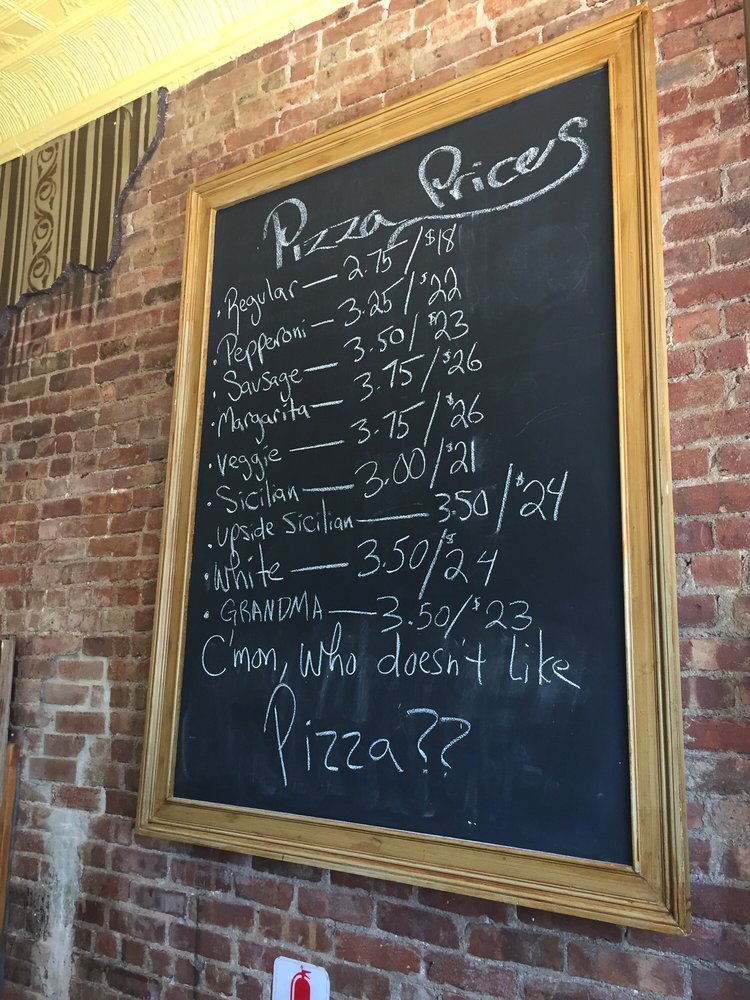 Pizza Prices
· Regular — 2.75 / $18
· Pepperoni — 3.25 / $22
· Sausage — 3.50 / $23
· Margarita — 3.75 / $26
· Veggie — 3.75 / $26
· Sicilian — 3.00 / $21
· upside Sicilian — 3.50 / $24
· White — 3.50 / $24
· GRANDMA — 3.50 / $23
C'mon, who doesn't like
Pizza??